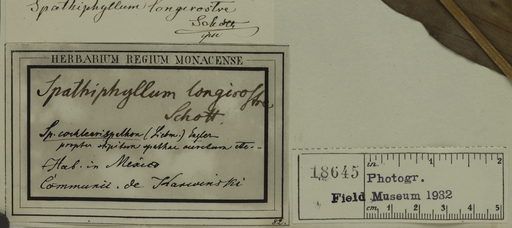 Spathiphyllum longirostre
Schott
HERBARIUM REGIUM MONACENSE
Spathiphyllum longirostre
Schott
Sp. cochlearispathum (Liebm.) Engler
propter stipitem spathae
Hab. in Mexico
Communic. de Karwinski
18645
in. 1 2
Photogr.
Field Museum 1932
cm. 1 2 3 4 5